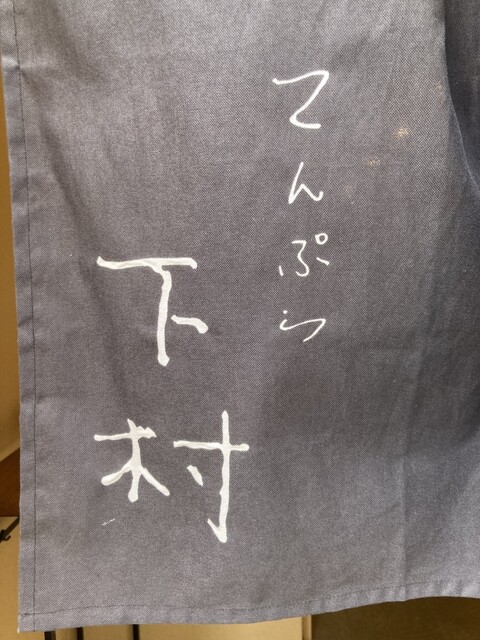 てんぷら
下村